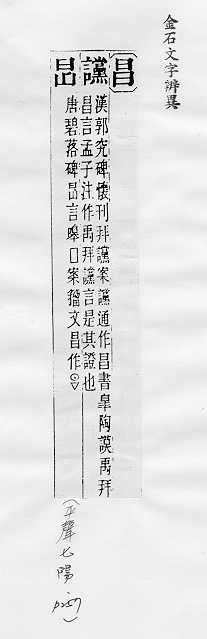 金石文字辨異
昌
讜
漢郭究碑懷刊拜讜案讜通作昌書皋陶謨禹拜
昌言孟子注作禹拜讜言是其證也
唐碧落碑 言 口案籀文昌作
(平聲七陽 p257)